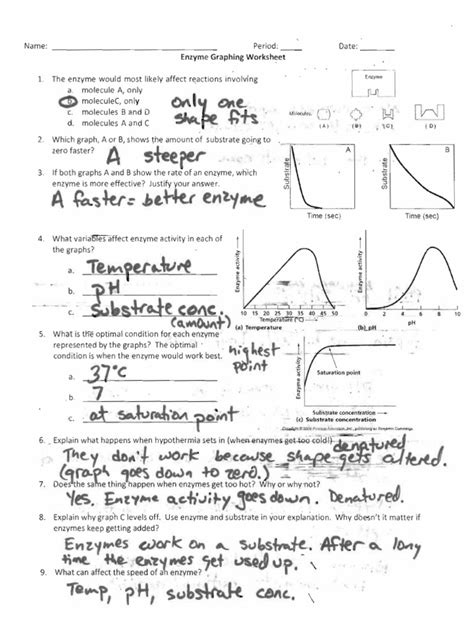 Name: Period: Date:
Enzyme Graphing Worksheet
1. The enzyme would most likely affect reactions involving
a. molecule A, only
b. moleculeC, only
c. molecules B and D
d. molecules A and C
only one
shape fits
Enzyme
Molecules:
(A) (B) (C) (D)
2. Which graph, A or B, shows the amount of substrate going to
zero faster?
A steeper
3. If both graphs A and B show the rate of an enzyme, which
enzyme is more effective? Justify your answer.
A faster = better enzyme
A
Substrate
Time (sec)
B
Substrate
Time (sec)
4. What variables affect enzyme activity in each of
the graphs?
a. Temperature
b. pH
c. Substrate conc.
(amount)
Enzyme activity
10 15 20 25 30 35 40 45 50
Temperature (°C)
(a) Temperature
Enzyme activity
2 4 6 8 10
pH
(b) pH
5. What is the optimal condition for each enzyme
represented by the graphs? The optimal
condition is when the enzyme would work best.
highest
point
a. 37°C
b. 7
c. at saturation point
Enzyme activity
Saturation point
Substrate concentration
(c) Substrate concentration
6. Explain what happens when hypothermia sets in (when enzymes get too cold!)
denatured
They don't work because shape gets altered.
(graph goes down to zero.)
7. Does the same thing happen when enzymes get too hot? Why or why not?
Yes. Enzyme activity goes down. Denatured.
8. Explain why graph C levels off. Use enzyme and substrate in your explanation. Why doesn't it matter if
enzymes keep getting added?
Enzymes work on a substrate. After a long
time the enzymes get used up.
9. What can affect the speed of an enzyme?
Temp, pH, substrate conc.